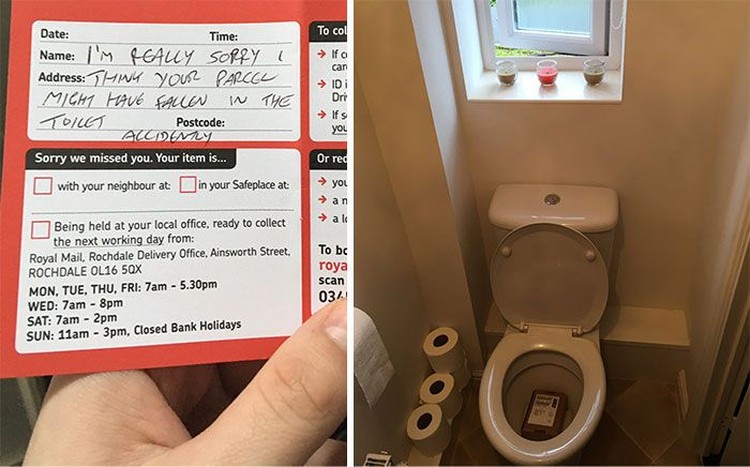 Date: Time:
Name: I'M REALLY SORRY I
Address: THINK YOUR PARCEL
MIGHT HAVE FALLEN IN THE
TOILET Postcode:
ACCIDENTLY
Sorry we missed you. Your item is...
with your neighbour at: in your Safeplace at:
Being held at your local office, ready to collect
the next working day from:
Royal Mail, Rochdale Delivery Office, Ainsworth Street,
ROCHDALE OL16 5QX
MON, TUE, THU, FRI: 7am - 5.30pm
WED: 7am - 8pm
SAT: 7am - 2pm
SUN: 11am - 3pm, Closed Bank Holidays
To col
→ If c
car
→ ID i
Dri
→ If s
you
Or re
→ you
→ a n
→ a lo
To bo
roya
scan
034